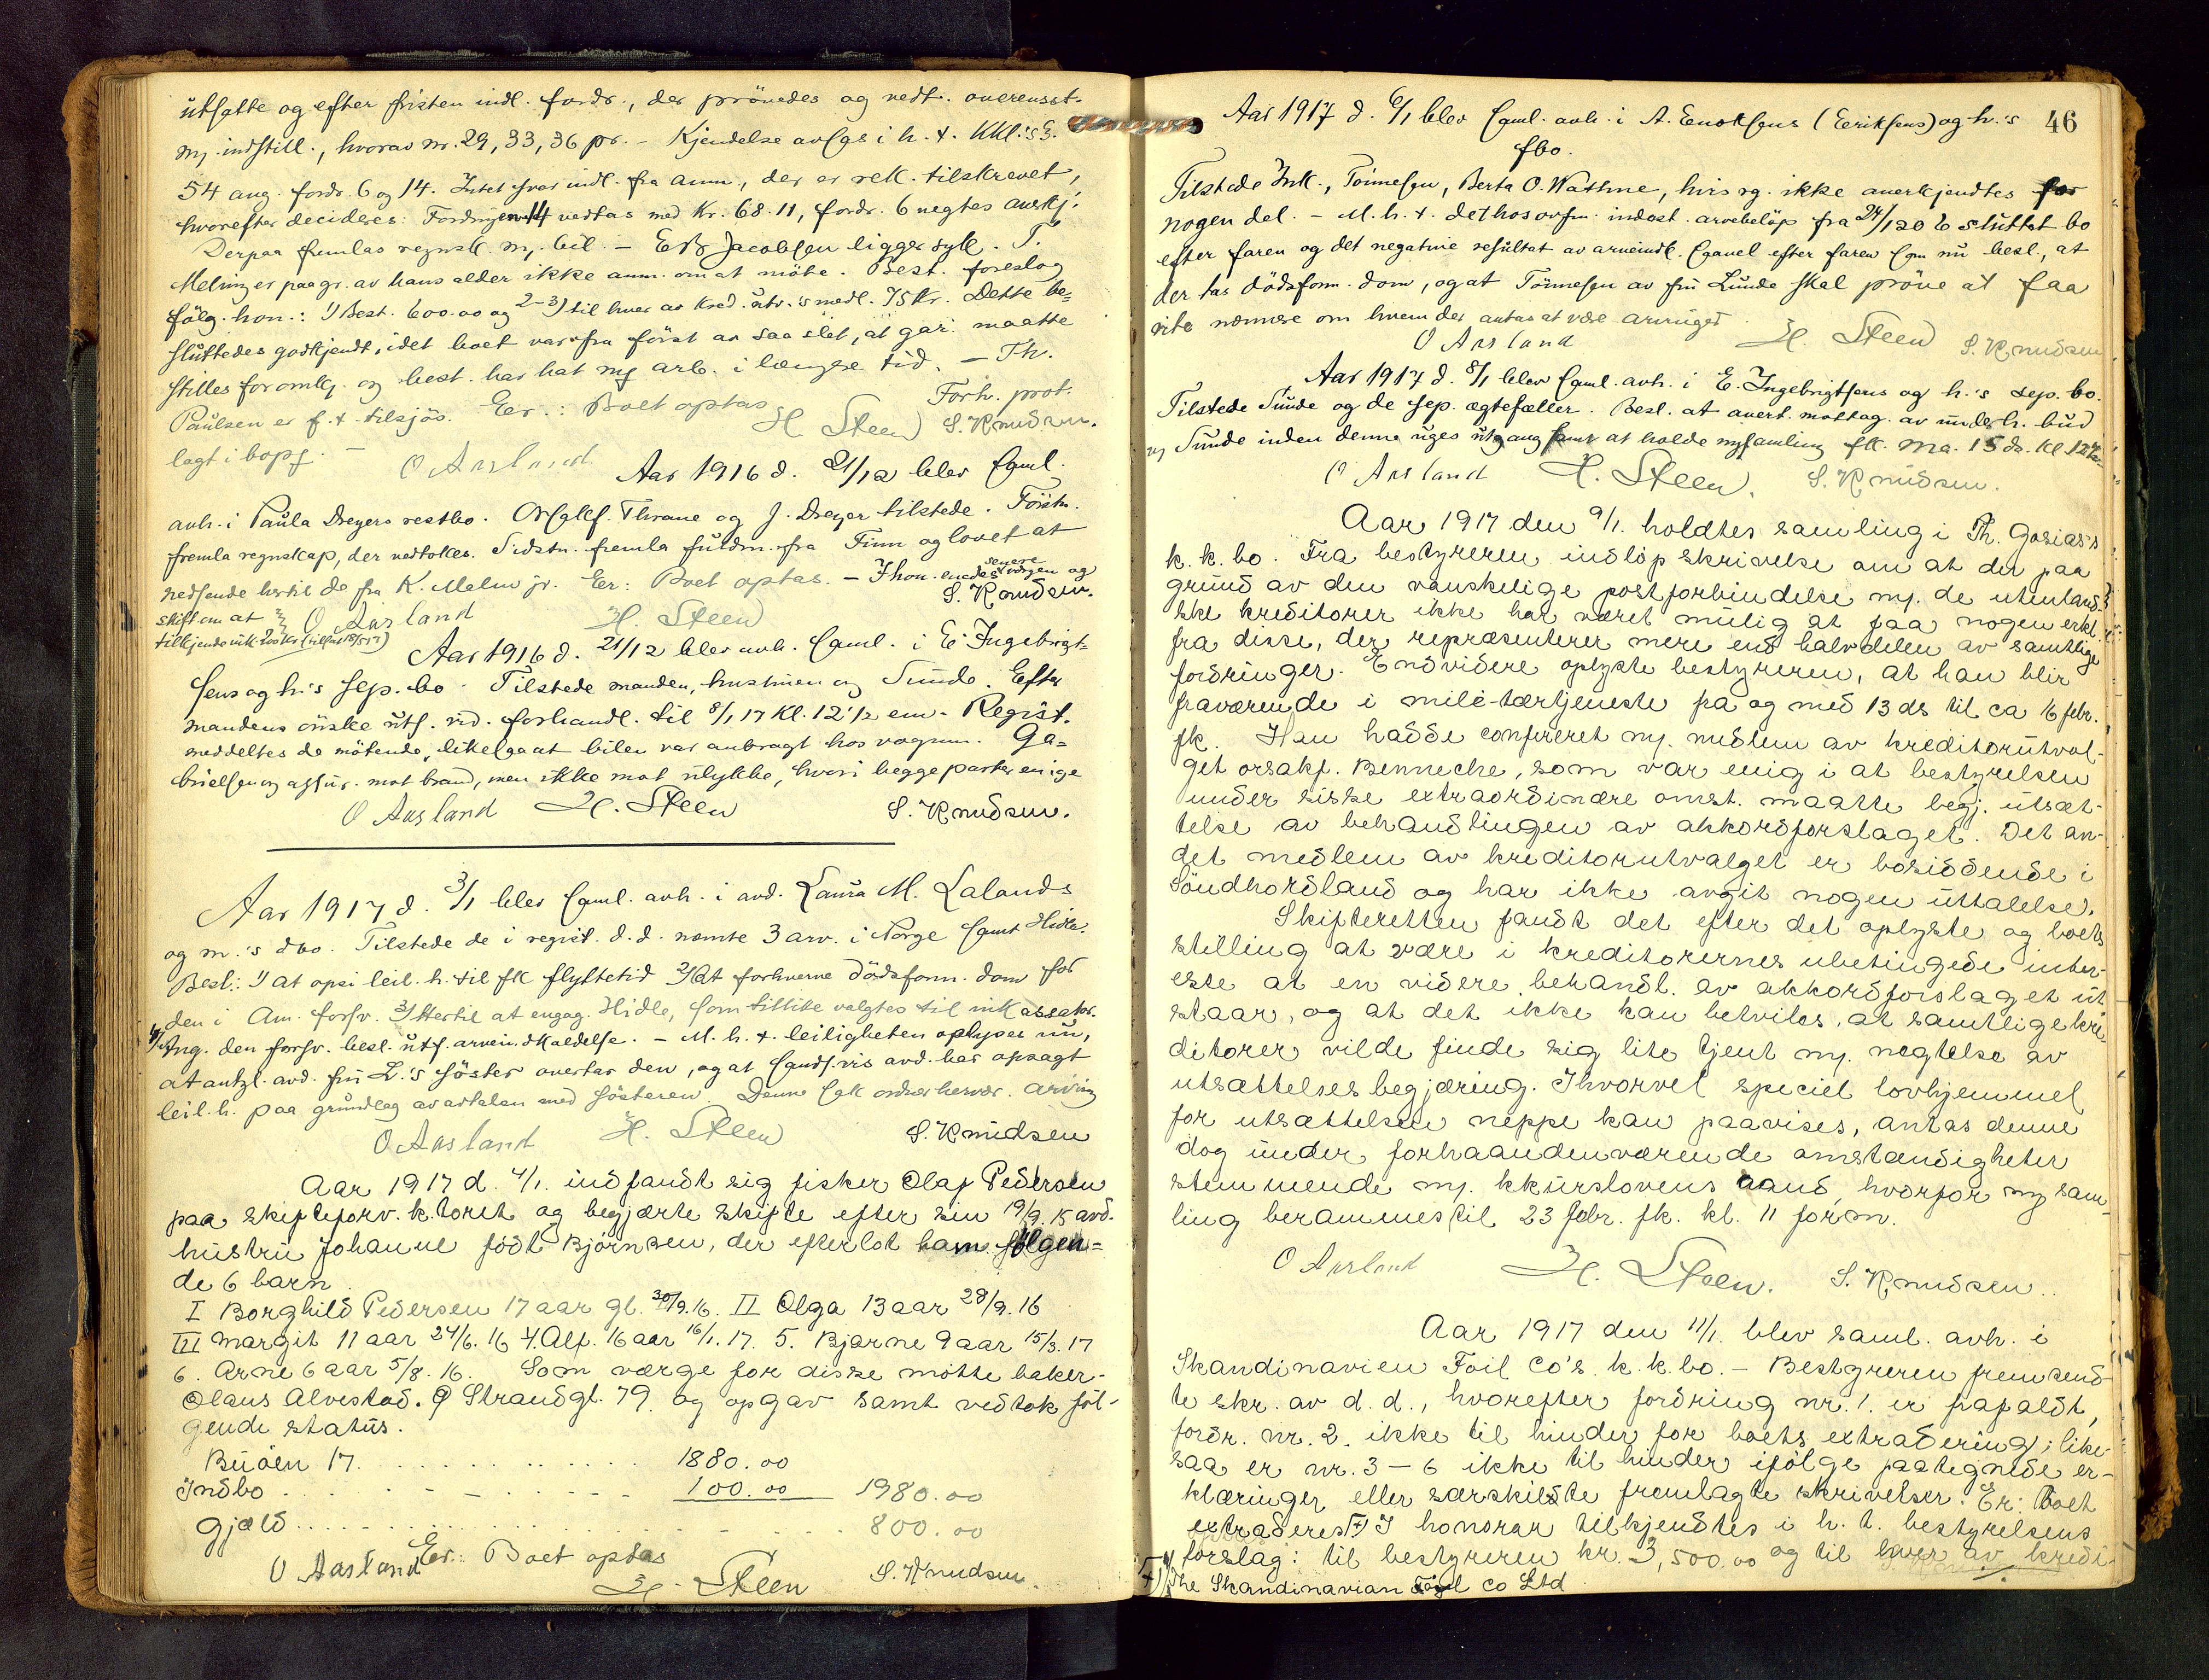 utsatte og efter fristen indl. fordr., der prövedes og vedt. overensst.
m/ indstill., hvorav nr. 29, 33, 36 pr. - Kjendelse avsas i h. t. KKl.'s §.
54 ang. fordr. 6 og 14. Intet svar indl. fra anm., der er rek. tilskrevet,
hvorefter decideres: Fordringen 14 vedtas med Kr. 68.11, fordr. 6 negtes anerkj.
Derpaa fremlas regnsk. m/ bil. - E B Jacobsen ligger syk. T.
Melving er paa gr. av hans alder ikke anm. om at möte. Best. foreslog
fölg. hon.: 1) Best. 600.00 og 2-3) til hver av kred. utv.'s medl. 75 kr. Dette be=
sluttedes godkjendt, idet boet var fra först av saa slet, at gar. maatte
stilles for omk. og best. har hat m/ arb. i længre tid. - Th.
Paulsen er f. t. tilsjös. Eer.: Boet optas Forh. prot.
lagt i bopf. - O Aasland H. Steen S. Knudsen.
Aar 1916 d. 21/12 blev saml.
avh. i Paula Dreyers restbo. Ovfsakf. Thrane og J. Dreyer tilstede. Förstn.
fremla regnskap, der vedtokes. Sidstn. fremla fuldm. fra Finn og lovet at
nedsende hertil de fra K. Malm jr. Eer: Boet optas. - I hon. enedes senere værgen og
skift om at O Aasland H. Steen S. Knudsen.
tilkjende ink. 200 kr
Aar 1916 d. 21/12 blev avh. saml. i E. Ingebrigt=
sens og h.'s sep. bo. Tilstede manden, hustruen og Sunde. Efter
mandens önske uts. vid. forhandl. til 8/1 17 Kl. 12 1/2 em. Regist.
meddeltes de mötende, likesaa at bilen var anbragt hos vognm. Ga=
brielsen og assur. mot brand, men ikke mot ulykke, hvori begge parter enige
O Aasland H. Steen S. Knudsen.
Aar 1917 d. 3/1 blev saml. avh. i avd. Laura M. Lalands
og m.'s dbo. Tilstede de i regist. d. d. nevnte 3 arv. i Norge samt Hidle.
Besl.: 1) at opsi leil. h. til fk flyttetid 2) at forhverve dödsform. dom for
den i Am. forsv. 3) Hertil at engag. Hidle, som tillike valgtes til inkassator.
4) Ang. den forsv. besl. utf. arvein. skaldelse. - M. h. t. leiligheten oplyses nu,
at antgl. avd. fru L.'s söster overtar den, og at sands.vis avd. har opsagt
leil. h. paa grundlag av avtalen med sösteren. Denne sak ordner hervær. arving
O Aasland H. Steen S. Knudsen
Aar 1917 d. 4/1. indfandt sig fisker Olaf Pedersen
paa skifteforv. k.toret og begjærte skifte efter sin 19/9 15 avd.
hustru Johanne födt Björnsen, der efterlot ham fölgen=
de 6 barn
I Borghild Pedersen 17 aar gl. 30/9. 16. II Olga 13 aar 28/9. 16
III Margit 11 aar 24/6. 16 4. Alf. 16 aar 16/1. 17. 5. Bjarne 9 aar 15/3. 17
6. Arne 6 aar 5/8. 16. Som værge for disse mötte baker-
Olaus Alvestad. 9 Strandgt. 79. og opgav samt vedtok föl-
gende status.
Buöen 17. . . . . . . . . . . . 1880.00
Indbo . . . . . . . . . . 100.00 1980.00
Gjæld . . . . . . . . . . . . . . . 800.00
O Aasland Eer.: Boet optas H. Steen S. Knudsen.
46
Aar 1917 d. 6/1 blev saml. avh. i A. Enoksens (Eeriksens) og h.'s
fbo.
Tilstede Ink., Tönnesen, Berta O. Wathne, hvis rg. ikke anerkjendtes for
nogen del. - M. h. t. det hos ovfm. indest. arvebelöp fra 24/1 20 6 sluttet bo
efter faren og det negative resultat av arveindk. saavel efter faren som nu besl., at
der tas dödsform. dom, og at Tönnesen av fru Lunde skal pröve at faa
vite nærmere om hvem der antas at være arvinger.
O Aasland H. Steen S. Knudsen
Aar 1917 d. 8/1 blev saml. avh. i E. Ingebrigtsens og h.'s sep. bo.
Tilstede Sunde og de sep. ægtefæller. Besl. at avert. mottag. av underh. bud
v/ Sunde inden denne uges utgang samt at holde ny samling fk. Ma. 15 ds. kl. 12 1/2
O Aasland H. Steen. S. Knudsen.
Aar 1917 den 9/1. holdtes samling i Th. Gosias's
k. k. bo. Fra bestyreren indlöp skrivelse om at der paa
grund av den vanskelige postforbindelse m/ de utenland-
ske kreditorer ikke har været mulig at faa nogen erkl.
fra disse, der repræsenterer mere end halvdelen av samtlige
fordringer. Endvidere oplyste bestyreren, at han blir
fraværende i milè-tærtjeneste fra og med 13 ds til ca 16 febr.
fk. Han hadde confereret m/ medlem av kreditorutval-
get orsakf. Bennecke, som var enig i at bestyrelsen
under disse extraordinære omst. maatte begj. utsæt-
telse av behandlingen av akkordforslaget. Det an-
det medlem av kreditorutvalget er bosiddende i
Söndhordland og har ikke avgit nogen uttalelse.
Skifteretten fandt det efter det oplyste og boets
stilling at være i kreditorernes ubetingede inter-
esse at en videre behandl. av akkordforslaget ut
staar, og at det ikke kan betviles, at samtlige kre
ditorer vilde finde sig lite tjent m/ negtelse av
utsættelsesbegjæring. Ihvorvel speciel lovhjemmel
for utsættelsen neppe kan paavises, antas denne
dog under forhaandenværende omstændigheter
stemmende m/ kkurslovens aand, hvorfor ny sam-
ling berammes til 23 febr. fk. kl. 11 form.
O Aasland H. Steen. S. Knudsen.
Aar 1917 den 11/1. blev saml. avh. i
Skandinavien Foil Co's k. k. bo. - Bestyreren fremsend-
te skr. av d. d., hvorefter fordring nr. 1. er frafaldt,
fordr. nr. 2. ikke til hinder for boets extradering; like-
saa er nr. 3 - 6 ikke til hinder ifölge paategnede er-
klæringer eller særskilte fremlagte skrivelser. Er: Boet
extraderes +) I honorar tilkjendtes i h. t. bestyrelsens
forslag: til bestyreren kr. 3,500.00 og til hver av kredi-
+) The Skandinavian Foil Co Ltd